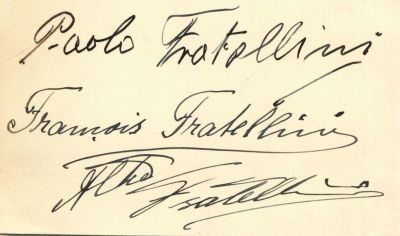 Paolo Fratellini
François Fratellini
Alto Fratellini